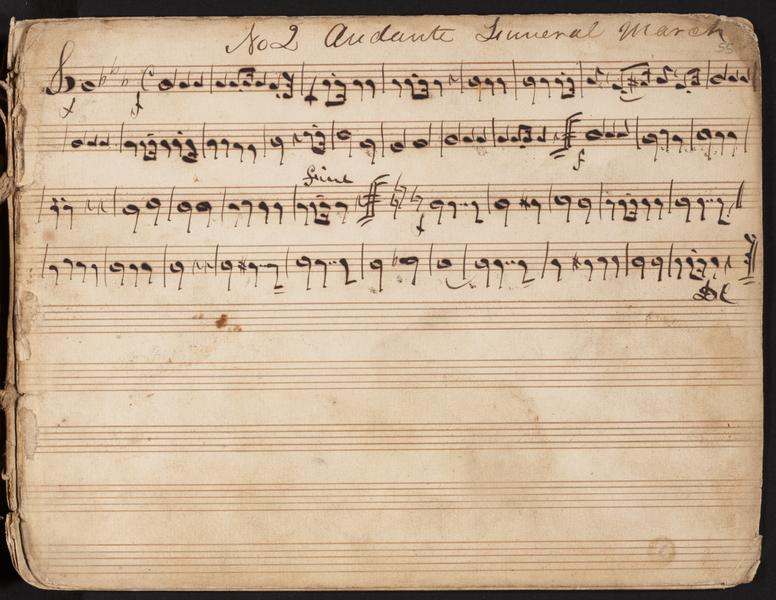 No 2 Andante Funeral March
55
f
f
Fine
f
DC